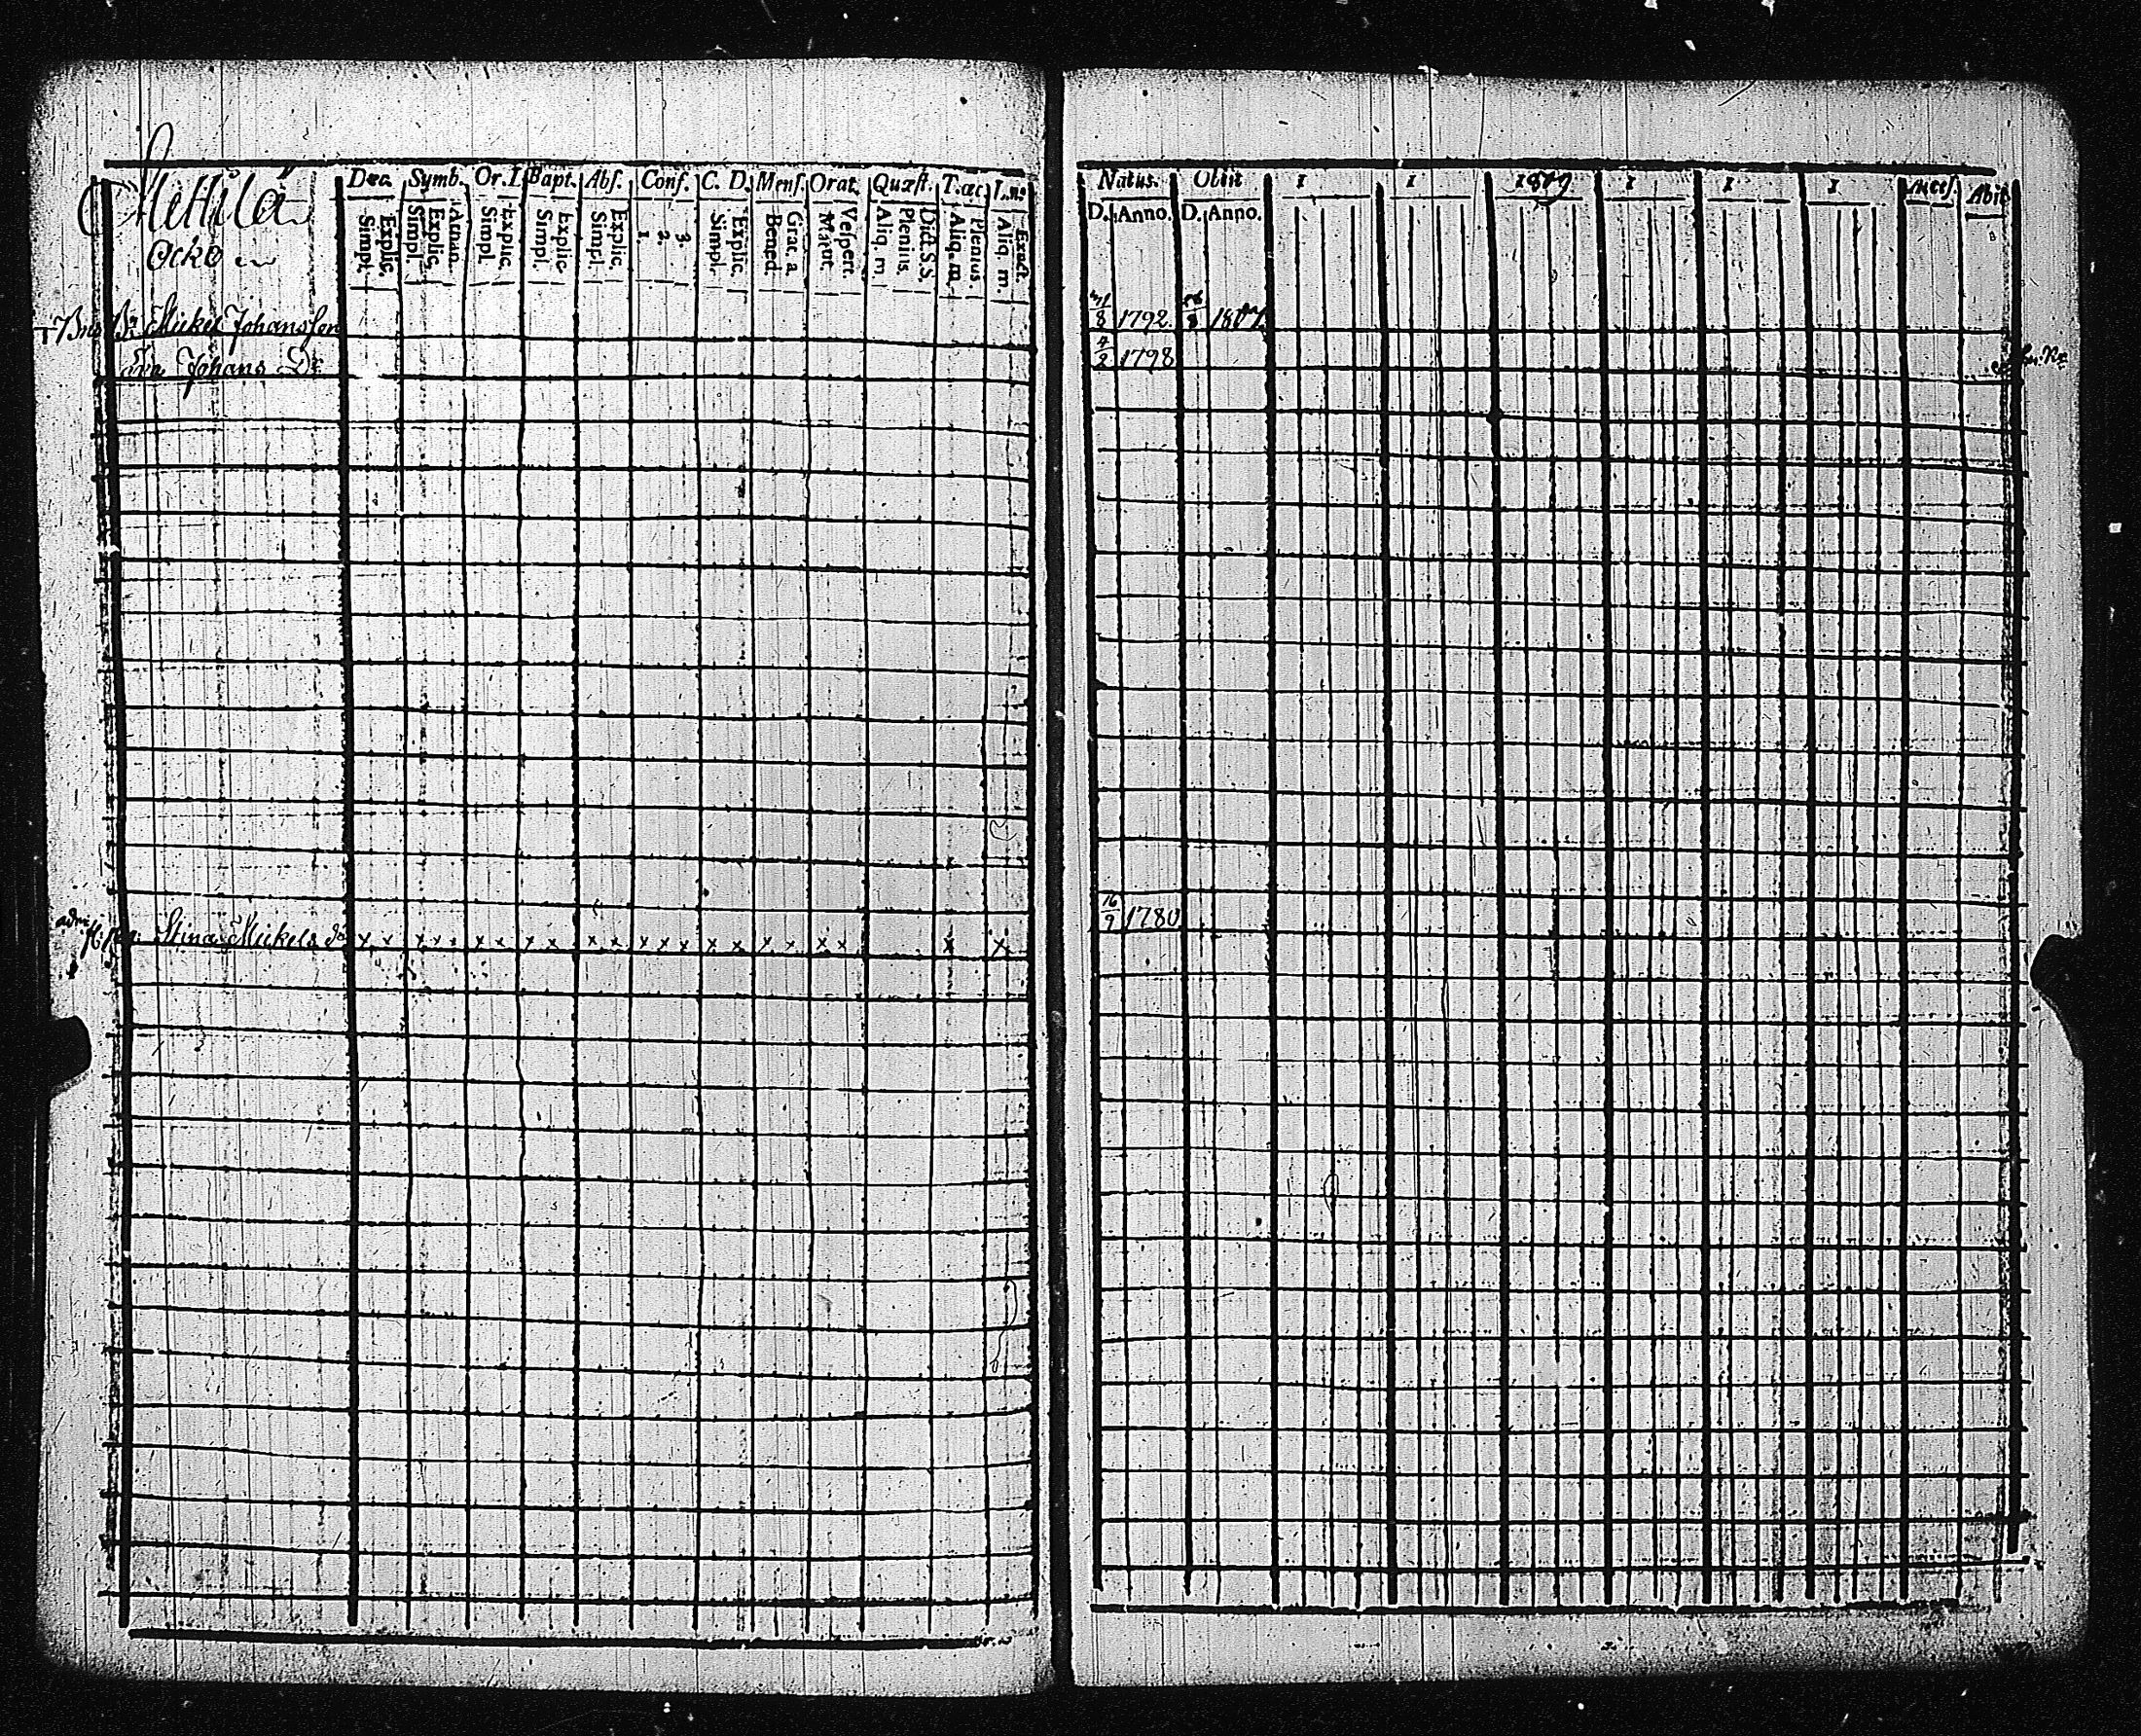 Mettilä
Ocko
Dec. Symb. Or. D. Bapt. Abſ. Conf. C. D. Menſ. Orat. Quæſt. T. œc.
Simpl. Explic. Simpl. Explic. Athan. Simpl. Explic. Simpl. Explic. Simpl. Explic. 1. 2. 3. Simpl. Explic. Bened. Grat. a Matut. Veſpert. Aliq. m. Plenius. Dict. S.S. Aliq. m. Plenius. Aliq. m. Exact.
Mickel Johansson
Johans Dr
Stina Mickels dr x x x x x x x x x x x x x x x x x x x x x x
Natus. Obiit 1 1 1809 1 1 1 Acceſ. Abiit
D. Anno. D. Anno.
8 1792 8 1807
4/2 1798
16/9 1780